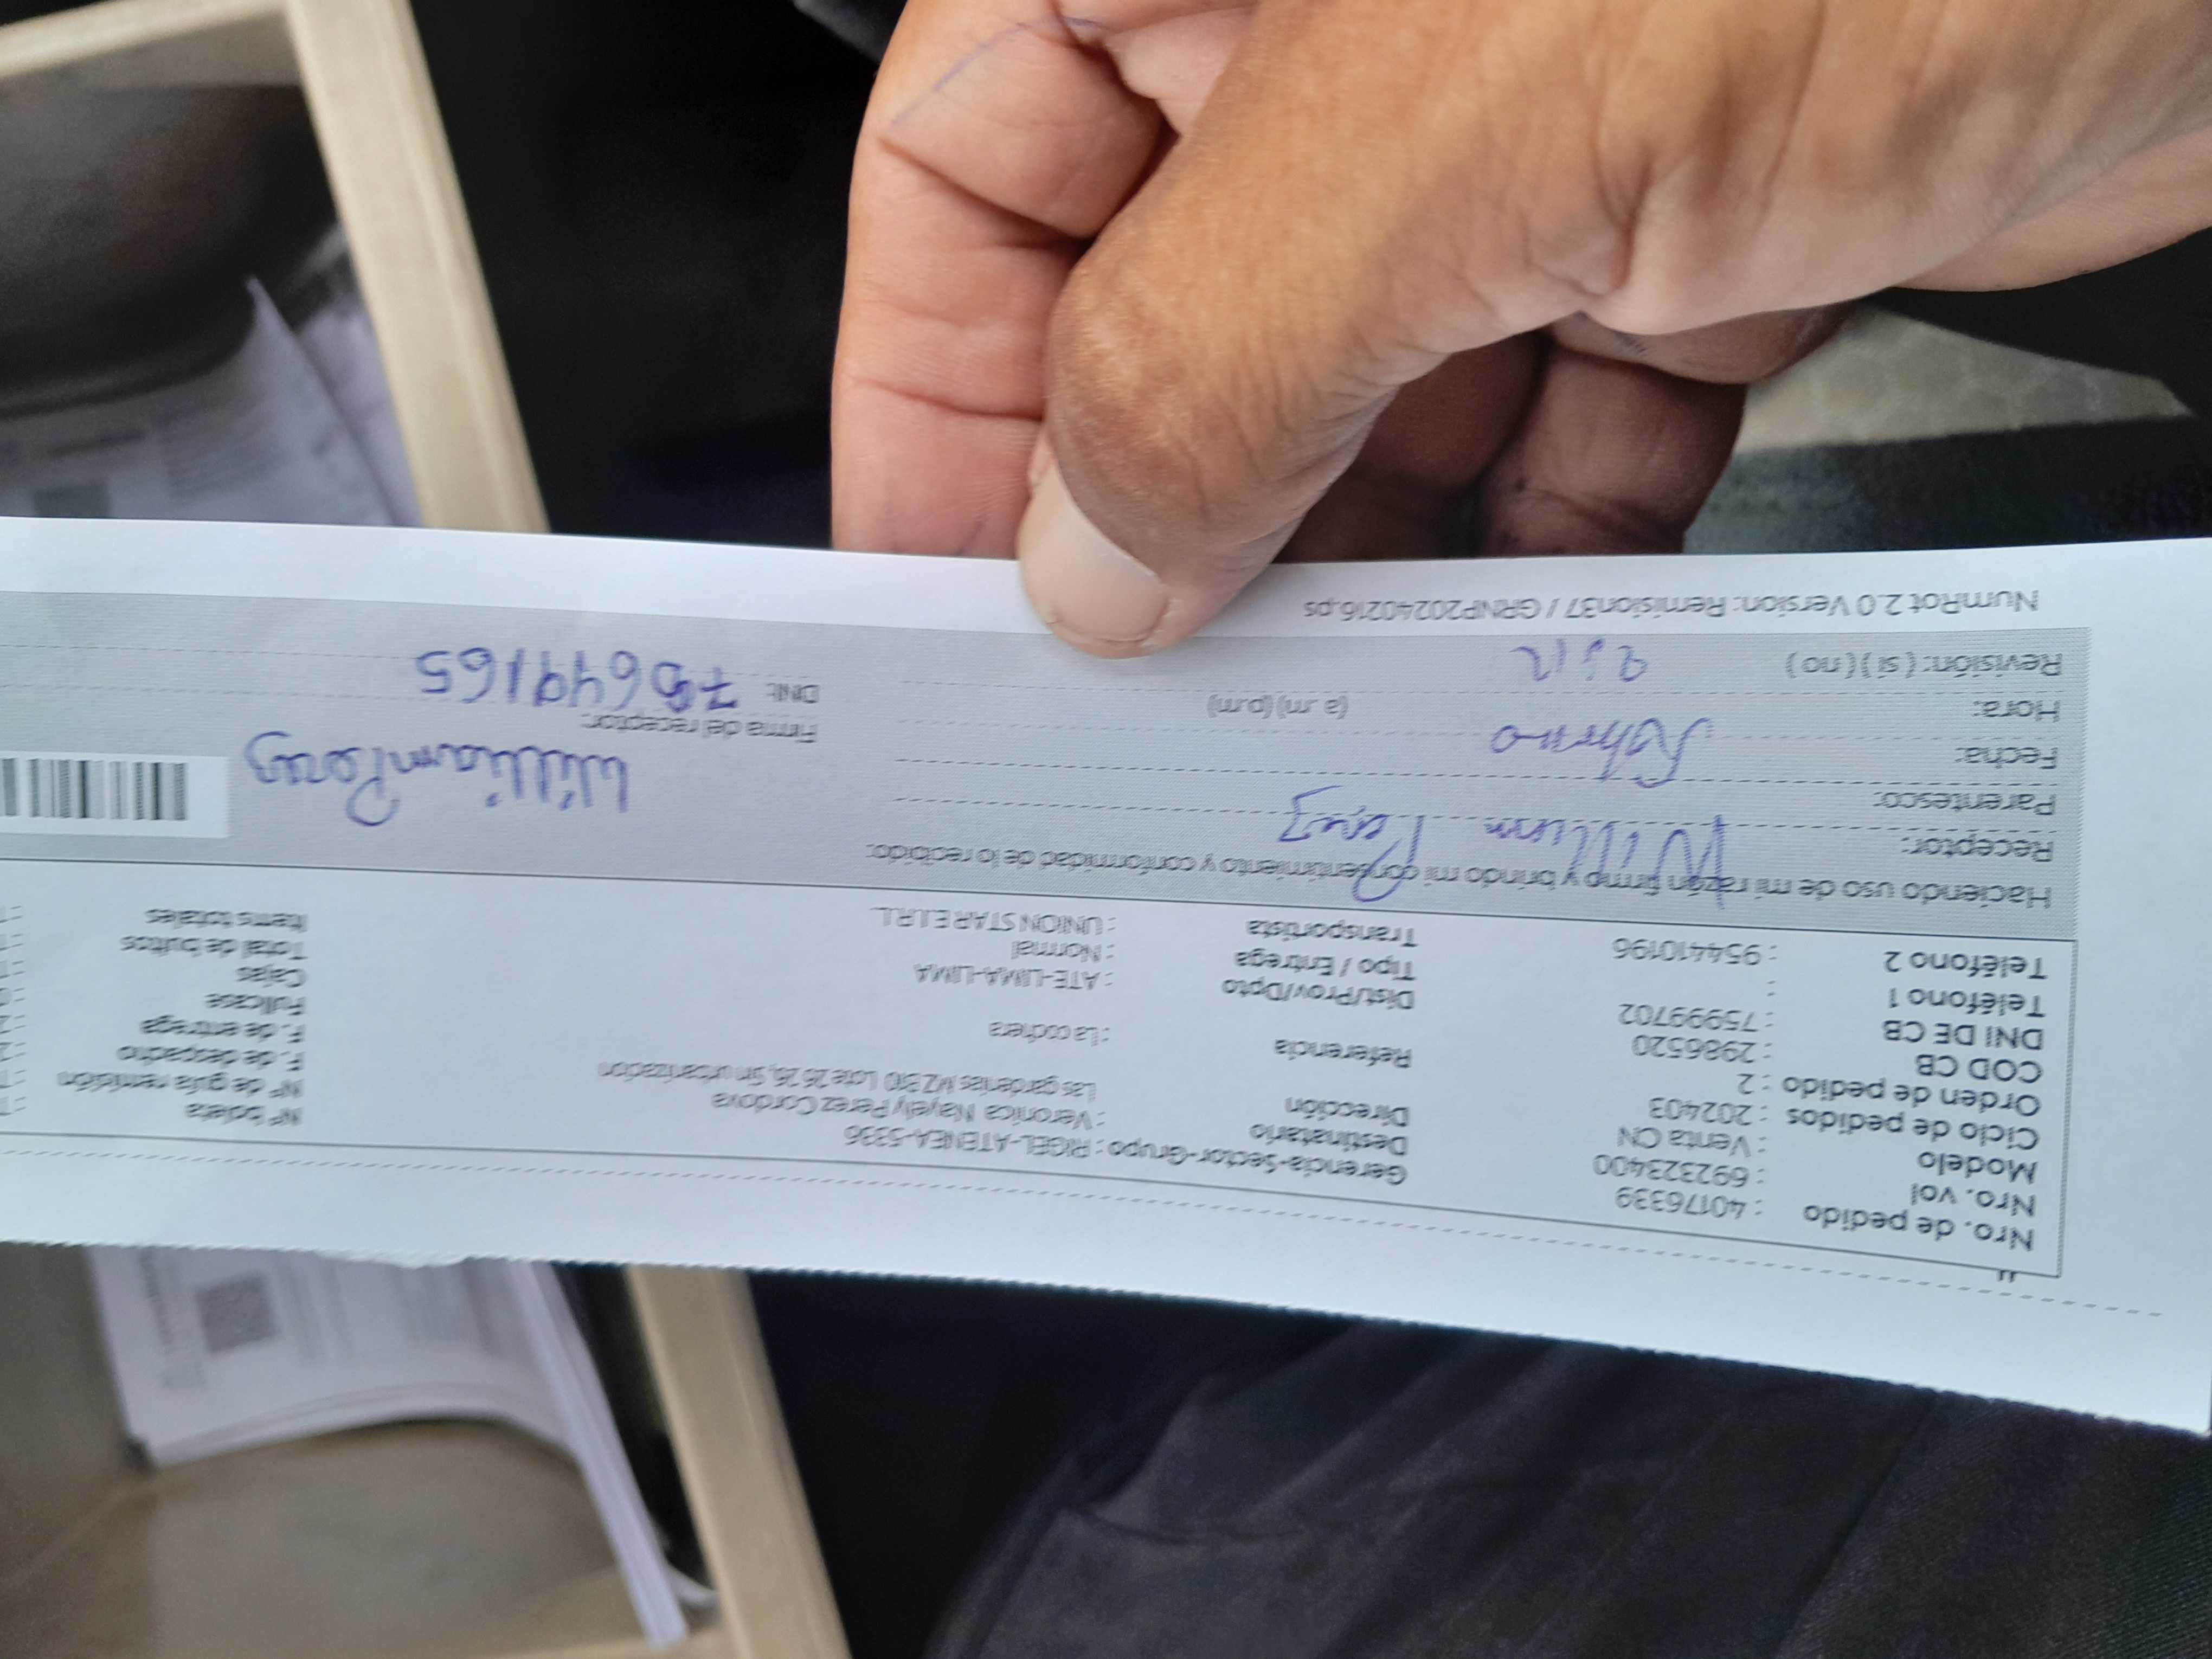 Nro. de pedido : 40176339 Gerencia-Sector-Grupo : RIGEL-ATENEA-5336 N° boleta
Nro. vol : 692323400 Destinatario : Veronica Nayely Perez Cordova N° de guía remisión
Modelo : Venta CN Dirección Las gardenias MZ Lote 26 26, Sin urbanizacion F. de despacho
Ciclo de pedidos : 202403 F. de entrega
Orden de pedido : 2 Referencia : La cochera Fullcase
COD CB : 2986520 Cajas
DNI DE CB : 75999702 Dist/Prov/Dpto : ATE-LIMA-LIMA Total de bultos
Teléfono 1 : Tipo / Entrega : Normal Items totales
Teléfono 2 : 954410196 Transportista : UNION STAR E.I.R.L.
Haciendo uso de mi razón firmo y brindo mi consentimiento y conformidad de lo recibido:
Receptor: William Perez
Parentesco: William Perez
Fecha: Firma del receptor:
Hora: (a .m) (p.m) DNI: 75649165
Revisión: ( si ) ( no )
NumRot 2.0 Version: Remision37 / GRNP20240216.ps